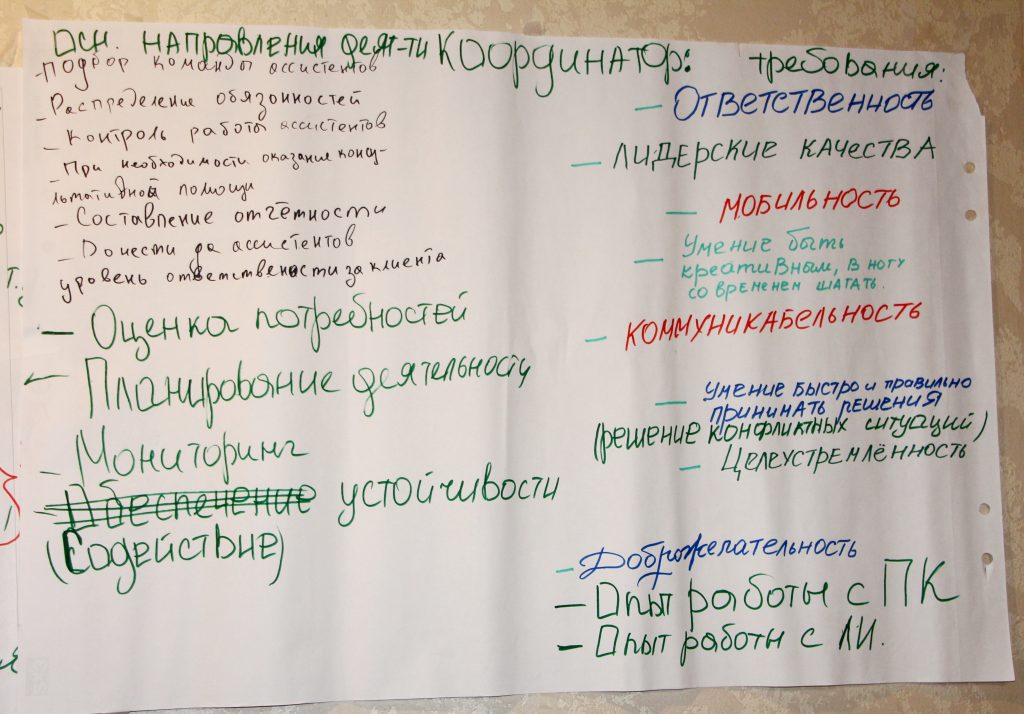 Осн. направления деят-ти Координатор:
- Подбор команды ассистентов
- Распределение обязонностей
- Контроль работы ассистентов
- При необходимости оказание консу-
льтативной помощи
- Составление отчётности
- Донести до ассистентов
уровень ответственности за клиента
- Оценка потребностей
- Планирование деятельности
- Мониторинг
- Обеспечение устойчивости
(Содействие)
требования:
- Ответственность
- ЛИДЕРСКИЕ КАЧЕСТВА
- МОБИЛЬНОСТЬ
- Умение быть
креативным, в ногу
со временем шагать.
- КОММУНИКАБЕЛЬНОСТЬ
- Умение быстро и правильно
прининать решения
(решение конфликтных ситуаций)
- Целеустремлённость
- Доброжелательность
- Опыт работы с ПК
- Опыт работы с ЛИ.